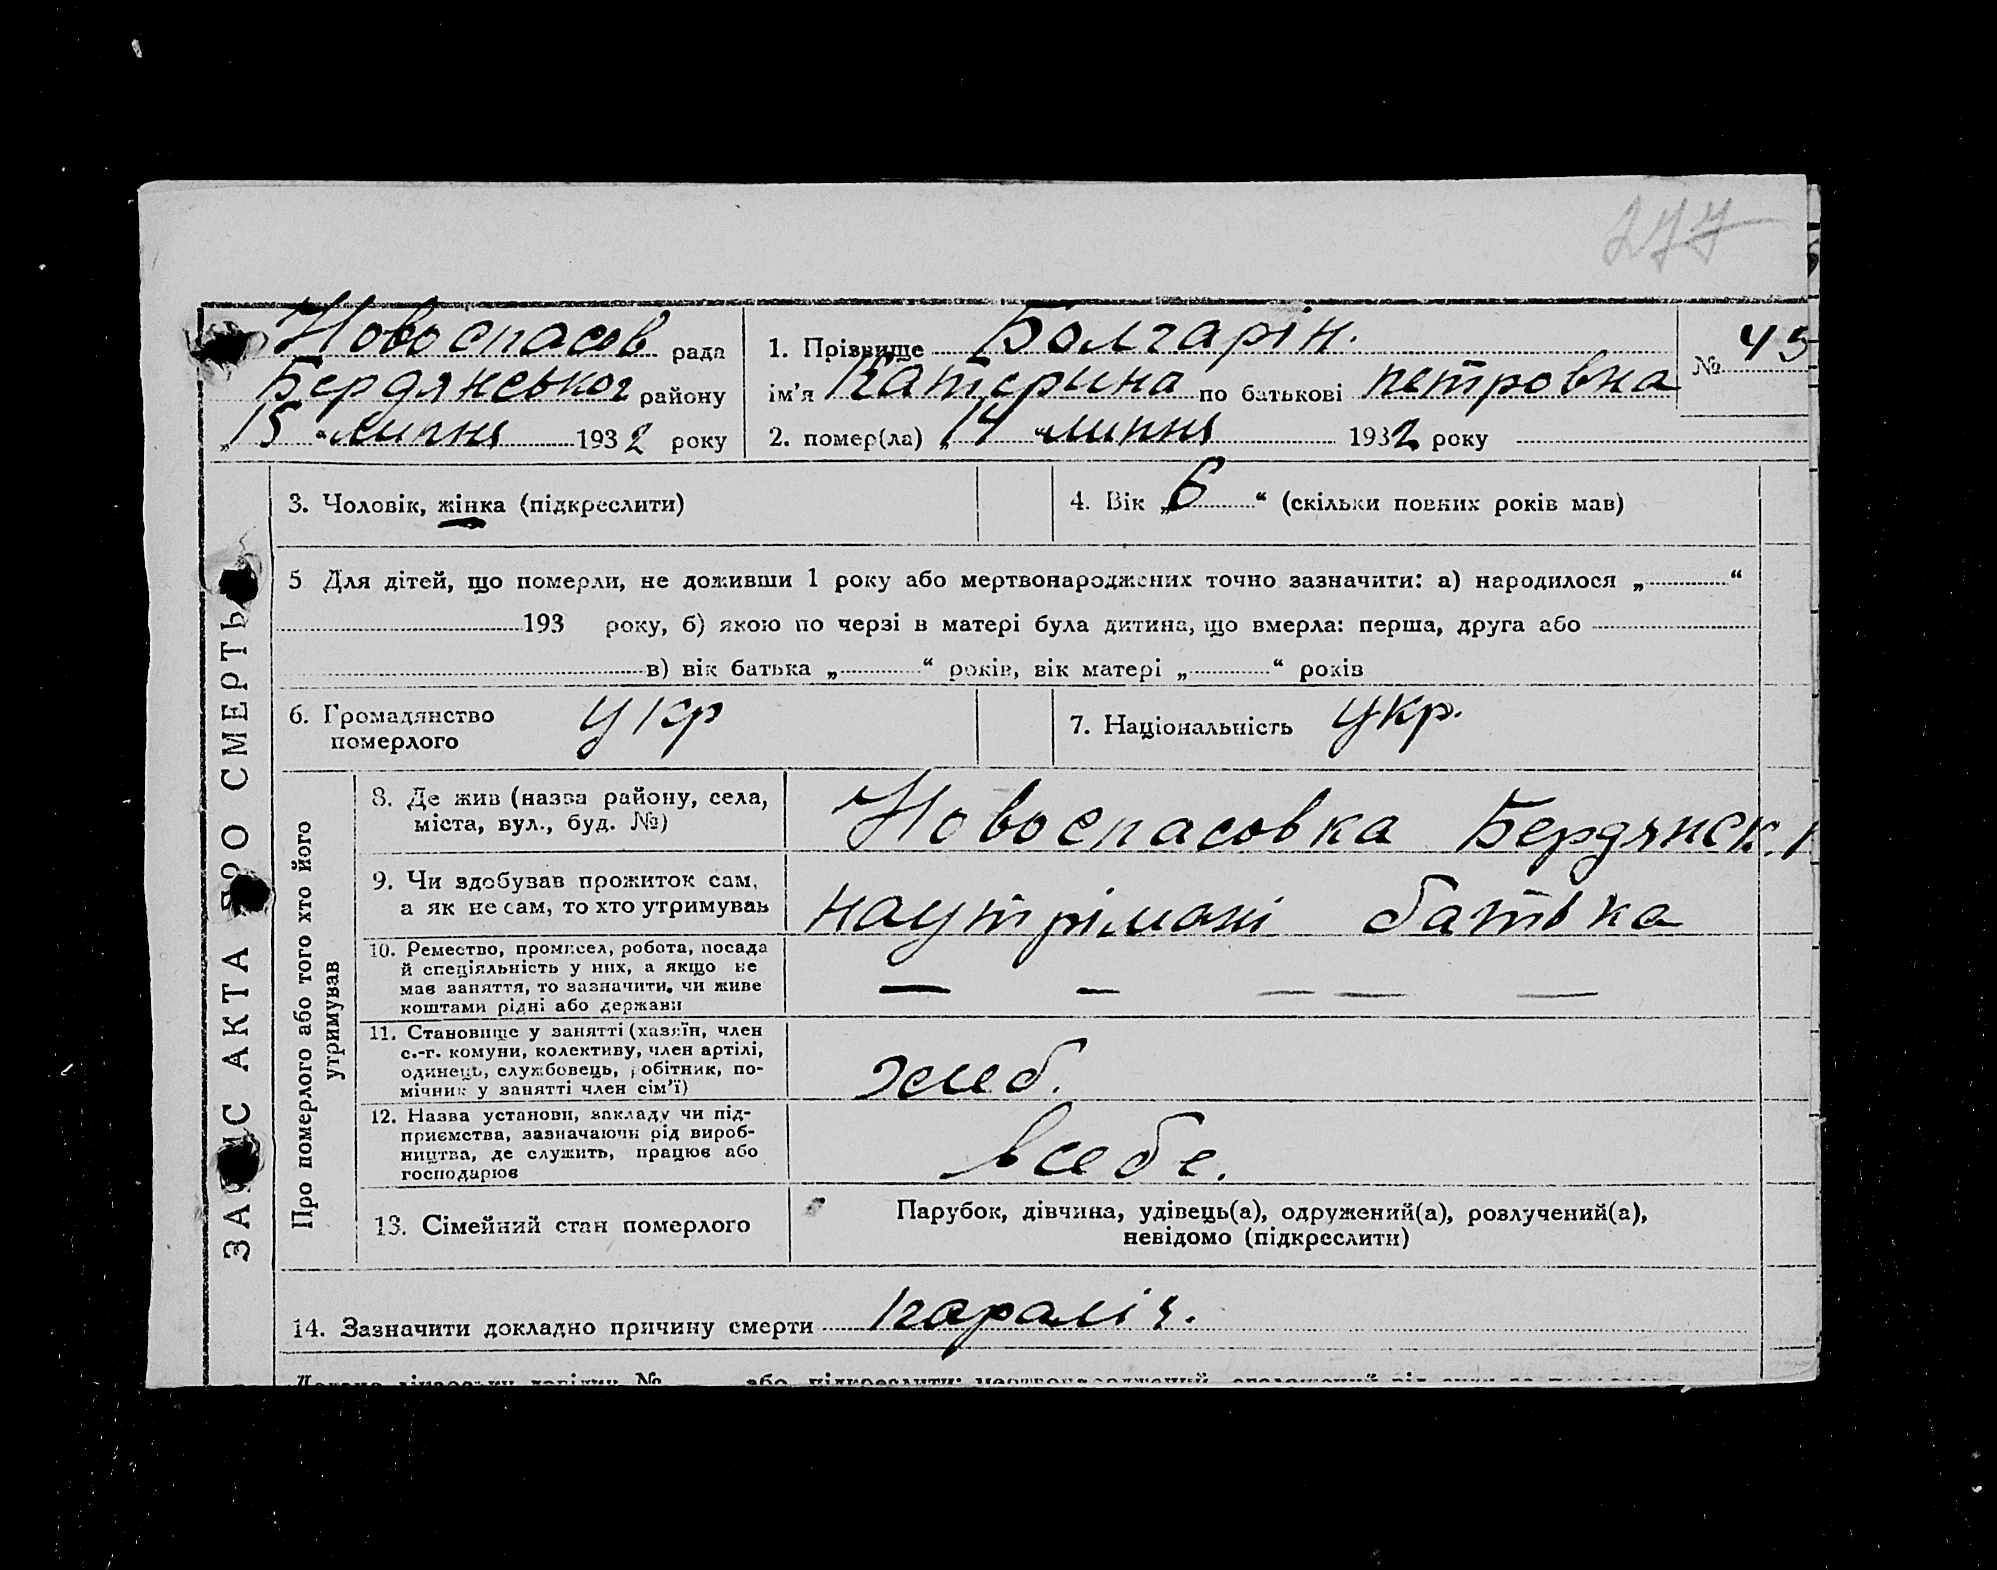 277
Новоспасов рада
Бердянської району
„15 “ липня 1932 року
1. Прізвище Болгарін.
ім’я Катерина по батькові петровна
2. помер(ла) „14 “ липня 1932 року
№ 45
3. Чоловік, жінка (підкреслити)
4. Вік „6“ (скільки повних років мав)
5 Для дітей, що померли, не доживши 1 року або мертвонароджених точно зазначити: а) народилося „ “
193 року, б) якою по черзі в матері була дитина, що вмерла: перша, друга або
в) вік батька „ “ років, вік матері „ “ років
6. Громадянство
померлого
укр
7. Національність укр.
ЗАПИС АКТА ПРО СМЕРТЬ
Про померлого або того хто його
утримував
8. Де жив (назва району, села,
міста, вул., буд. №)
Новоспасовка Бердянск.
9. Чи здобував прожиток сам,
а як не сам, то хто утримував
наутрімані батька
10. Ремество, промисел, робота, посада
й спеціяльність у них, а якщо не
мав заняття, то зазначити, чи живе
коштами рідні або держави
— — — — —
11. Становище у занятті (хазяїн, член
с.-г. комуни, колективу, член артілі,
одинець, службовець, робітник, по-
мічник у занятті член сім’ї)
хлеб.
12. Назва установи, закладу чи під-
приємства, зазначаючи рід вироб-
ництва, де служить, працює або
господарює
всебе.
13. Сімейний стан померлого
Парубок, дівчина, удівець(а), одружений(а), розлучений(а),
невідомо (підкреслити)
14. Зазначити докладно причину смерти параліч.